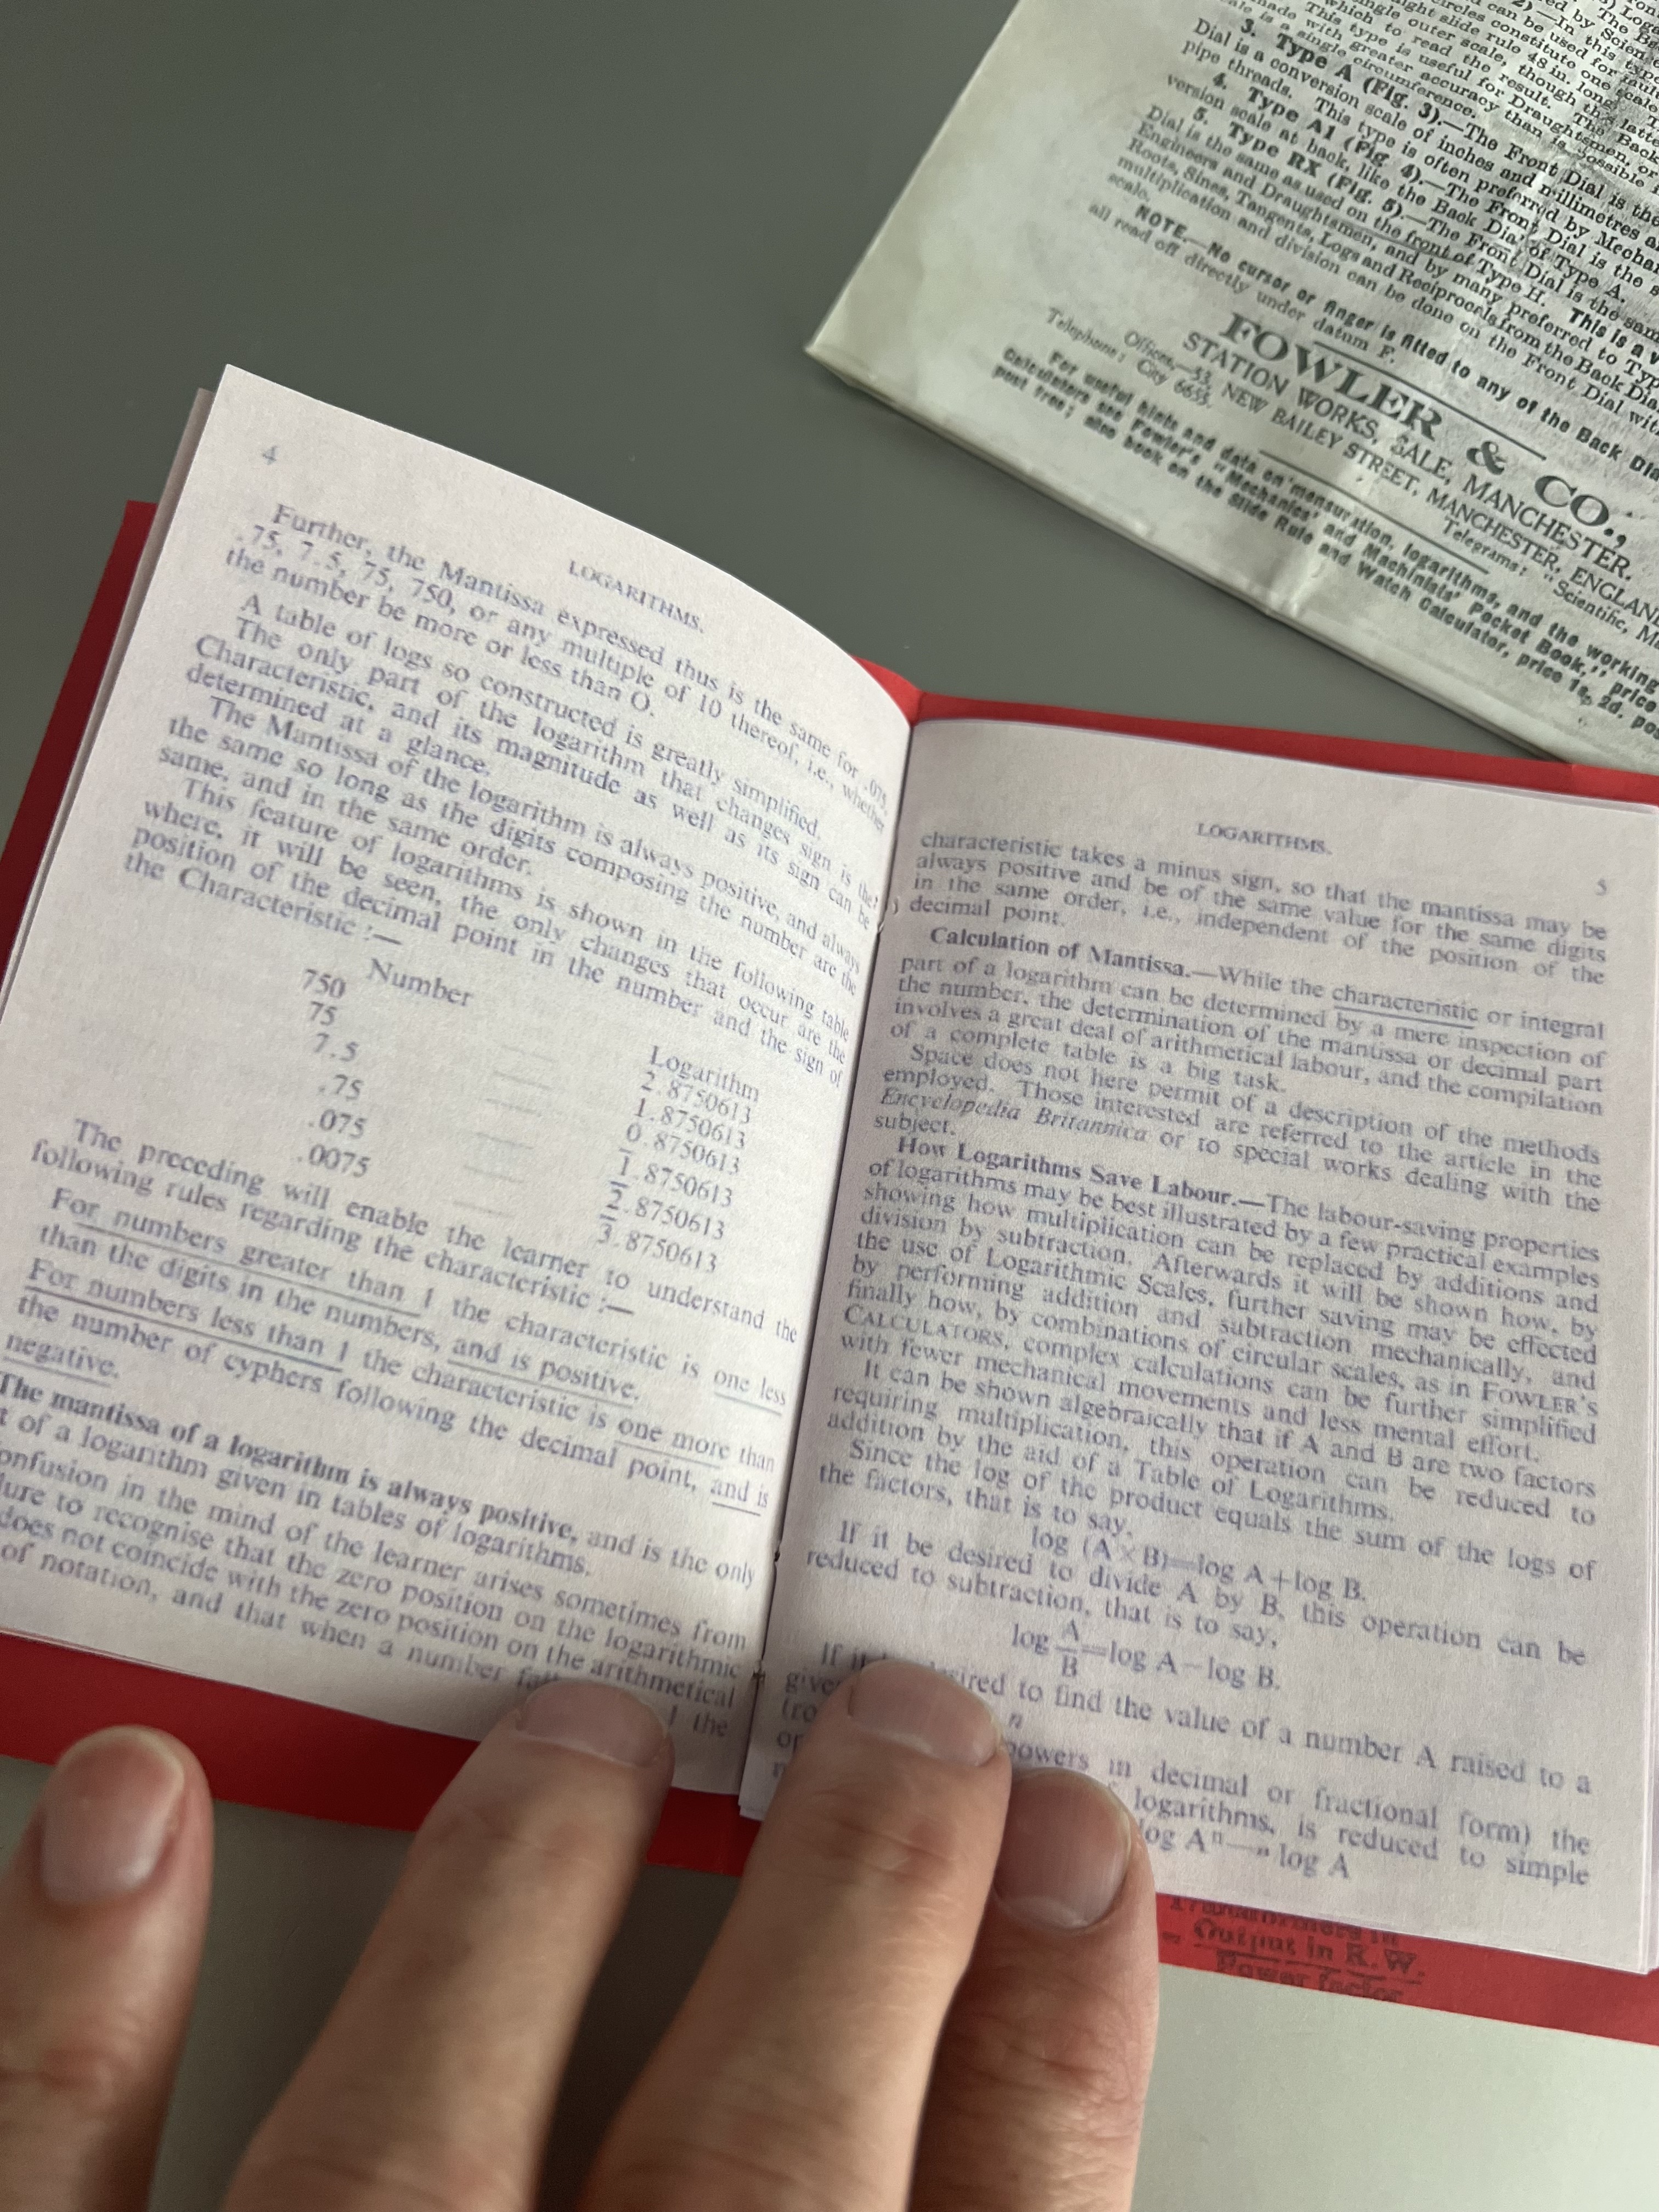 4
LOGARITHMS.
Further, the Mantissa expressed thus is the same for .075,
.75, 7.5, 75, 750, or any multiple of 10 thereof, i.e., whether
the number be more or less than O.
A table of logs so constructed is greatly simplified.
The only part of the logarithm that changes sign is the
Characteristic, and its magnitude as well as its sign can be
determined at a glance.
The Mantissa of the logarithm is always positive, and always
the same so long as the digits composing the number are the
same, and in the same order.
This feature of logarithms is shown in the following table
where, it will be seen, the only changes that occur are the
position of the decimal point in the number and the sign of
the Characteristic :—
Number Logarithm
750 2.8750613
75 1.8750613
7.5 0.8750613
.75 1̄.8750613
.075 2̄.8750613
.0075 3̄.8750613
The preceding will enable the learner to understand the
following rules regarding the characteristic :—
For numbers greater than 1 the characteristic is one less
than the digits in the numbers, and is positive.
For numbers less than 1 the characteristic is one more than
the number of cyphers following the decimal point, and is
negative.
The mantissa of a logarithm is always positive, and is the only
of a logarithm given in tables of logarithms.
onfusion in the mind of the learner arises sometimes from
lure to recognise that the zero position on the logarithmic
does not coincide with the zero position on the arithmetical
of notation, and that when a number the
LOGARITHMS.
5
characteristic takes a minus sign, so that the mantissa may be
always positive and be of the same value for the same digits
in the same order, i.e., independent of the position of the
decimal point.
Calculation of Mantissa.—While the characteristic or integral
part of a logarithm can be determined by a mere inspection of
the number, the determination of the mantissa or decimal part
involves a great deal of arithmetical labour, and the compilation
of a complete table is a big task.
Space does not here permit of a description of the methods
employed. Those interested are referred to the article in the
Encyclopedia Britannica or to special works dealing with the
subject.
How Logarithms Save Labour.—The labour-saving properties
of logarithms may be best illustrated by a few practical examples
showing how multiplication can be replaced by additions and
division by subtraction. Afterwards it will be shown how, by
the use of Logarithmic Scales, further saving may be effected
by performing addition and subtraction mechanically, and
finally how, by combinations of circular scales, as in FOWLER'S
CALCULATORS, complex calculations can be further simplified
with fewer mechanical movements and less mental effort.
It can be shown algebraically that if A and B are two factors
requiring multiplication, this operation can be reduced to
addition by the aid of a Table of Logarithms.
Since the log of the product equals the sum of the logs of
the factors, that is to say,
log (A×B)=log A+log B.
If it be desired to divide A by B, this operation can be
reduced to subtraction, that is to say,
log A/B=log A−log B.
If it desired to find the value of a number A raised to a
n
powers in decimal or fractional form) the
logarithms, is reduced to simple
log Aⁿ—n log A
3. Type A (Fig. 3).—The Front Dial is the
Dial is a conversion scale of inches and millimetres
pipe threads. This type is often preferred by Mechan
4. Type A1 (Fig. 4).—The Front Dial is the
version scale at back, like the Back Dial of Type A.
5. Type RX (Fig. 5).—The Front Dial is the same
Dial is the same as used on the front of Type H. This is a v
Engineers and Draughtsmen, and by many preferred to Typ
Roots, Sines, Tangents, Logs and Reciprocals from the Back Dia
multiplication and division can be done on the Front Dial with
scale.
NOTE.—No cursor or finger is fitted to any of the Back Dia
all read off directly under datum F.
FOWLER & CO.,
STATION WORKS, SALE, MANCHESTER.
Offices,—53, NEW BAILEY STREET, MANCHESTER, ENGLAND
Telephone: City 6653. Telegrams: "Scientific, M
For useful hints and data on mensuration, logarithms, and the working
Calculators use Fowler's "Mechanics' and Machinists' Pocket Book," price
post free; also book on the Slide Rule and Watch Calculator, price 1s. 2d. pos
Output in R.W.
Power factor